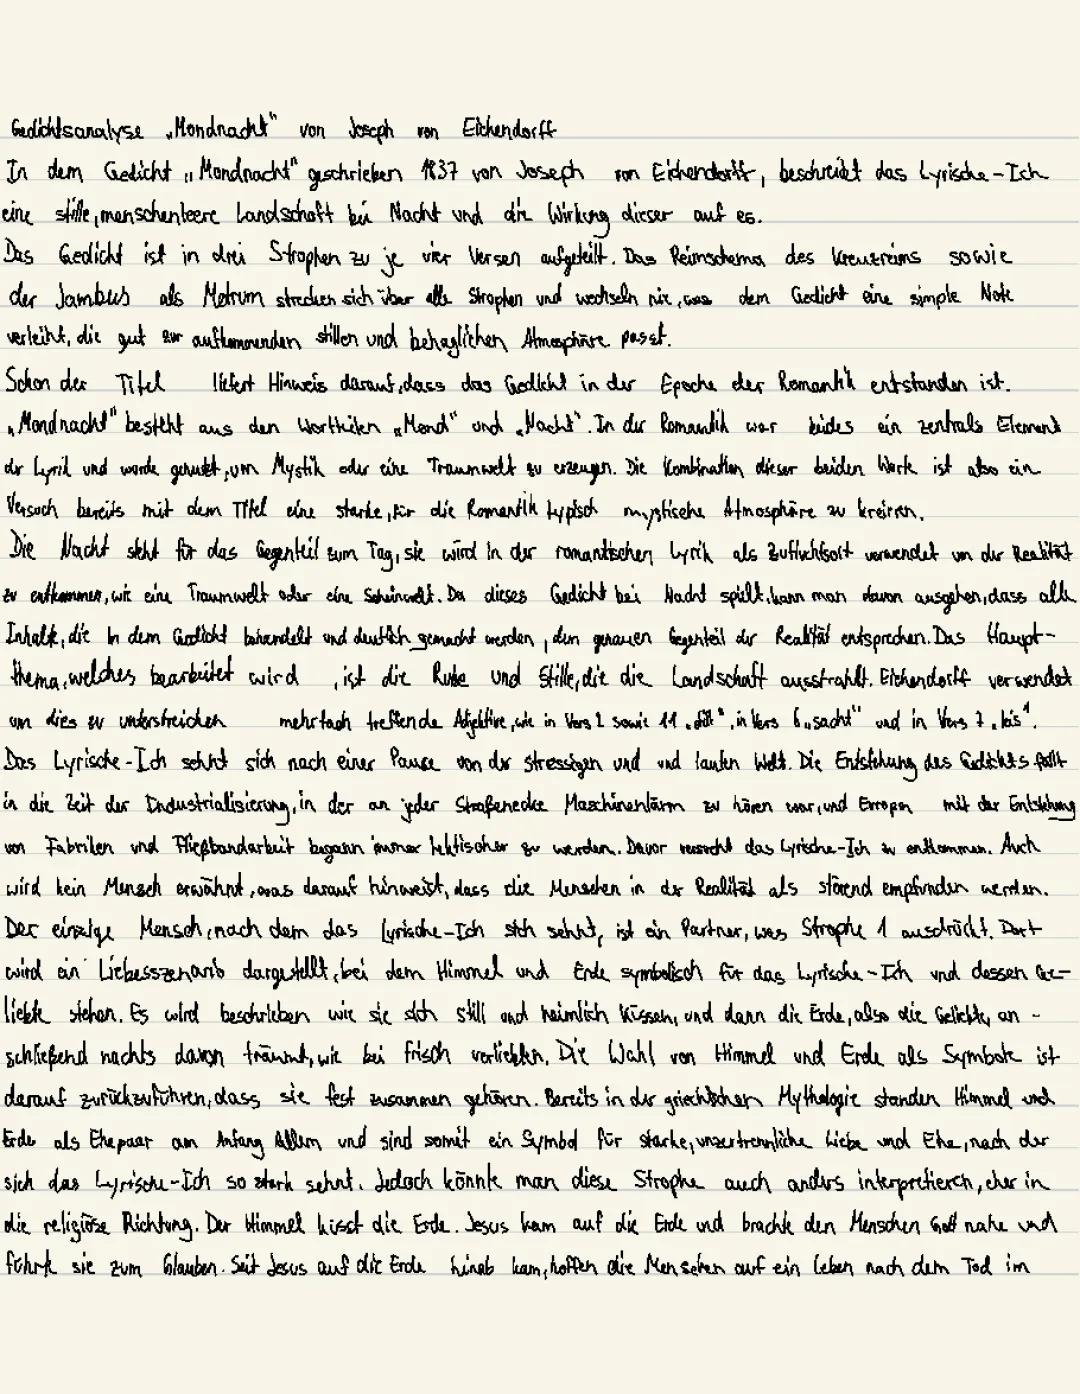 Gedichtsanalyse „Mondnacht" von Joseph von Eichendorff
In dem Gedicht „Mondnacht" geschrieben 1837 von Joseph von Eichendorff, beschreibt das Lyrische-Ich
eine stille, menschenleere Landschaft bei Nacht und die Wirkung dieser auf es.
Das Gedicht ist in drei Strophen zu je vier Versen aufgeteilt. Das Reimschema des Kreuzreims sowie
der Jambus als Metrum strecken sich über alle Strophen und wechseln nie, was dem Gedicht eine simple Note
verleiht, die gut zur aufkommenden stillen und behaglichen Atmosphäre passt.
Schon der Titel liefert Hinweis darauf, dass das Gedicht in der Epoche der Romantik entstanden ist.
„Mondnacht" besteht aus den Wortteilen „Mond" und „Nacht". In der Romantik war beides ein zentrals Element
der Lyrik und wurde genutzt, um Mystik oder eine Traumwelt zu erzeugen. Die Kombination dieser beiden Worte ist also ein
Versuch bereits mit dem Titel eine starke, für die Romantik typisch mystische Atmosphäre zu kreiren.
Die Nacht steht für das Gegenteil zum Tag, sie wird in der romantischen Lyrik als Zufluchtsort verwendet um der Realität
zu entkommen, wie eine Traumwelt oder eine Scheinwelt. Da dieses Gedicht bei Nacht spielt, kann man davon ausgehen, dass alle
Inhalte, die in dem Gedicht behandelt und deutlich gemacht werden, dem genauen Gegenteil der Realität entsprechen. Das Haupt-
thema, welches bearbeitet wird, ist die Ruhe und Stille, die die Landschaft ausstrahlt. Eichendorff verwendet
um dies zu unterstreichen mehrfach treffende Adjektive, wie in Vers 2 sowie 11 „still", in Vers 6 „sacht" und in Vers 7 „leis".
Das Lyrische-Ich sehnt sich nach einer Pause von der stressigen und und lauten Welt. Die Entstehung des Gedichts fällt
in die Zeit der Industrialisierung, in der an jeder Straßenecke Maschinenlärm zu hören war, und Europa mit der Entstehung
von Fabriken und Fließbandarbeit begann immer hektischer zu werden. Davor versucht das Lyrische-Ich zu entkommen. Auch
wird kein Mensch erwähnt, was darauf hinweist, dass die Menschen in der Realität als störend empfunden werden.
Der einzige Mensch, nach dem das Lyrische-Ich sich sehnt, ist ein Partner, was Strophe 1 ausdrückt. Dort
wird ein Liebesszenario dargestellt, bei dem Himmel und Erde symbolisch für das Lyrische-Ich und dessen Ge-
liebte stehen. Es wird beschrieben wie sie sich still und heimlich küssen, und dann die Erde, also die Geliebte, an-
schließend nachts davon träumt, wie bei frisch verliebten. Die Wahl von Himmel und Erde als Symbole ist
darauf zurückzuführen, dass sie fest zusammen gehören. Bereits in der griechischen Mythologie standen Himmel und
Erde als Ehepaar am Anfang Allem und sind somit ein Symbol für starke, unzertrennliche Liebe und Ehe, nach der
sich das Lyrische-Ich so stark sehnt. Jedoch könnte man diese Strophe auch anders interpretieren, eher in
die religiöse Richtung. Der Himmel küsst die Erde. Jesus kam auf die Erde und brachte den Menschen Gott nahe und
führte sie zum Glauben. Seit Jesus auf die Erde hinab kam, hoffen die Menschen auf ein Leben nach dem Tod im